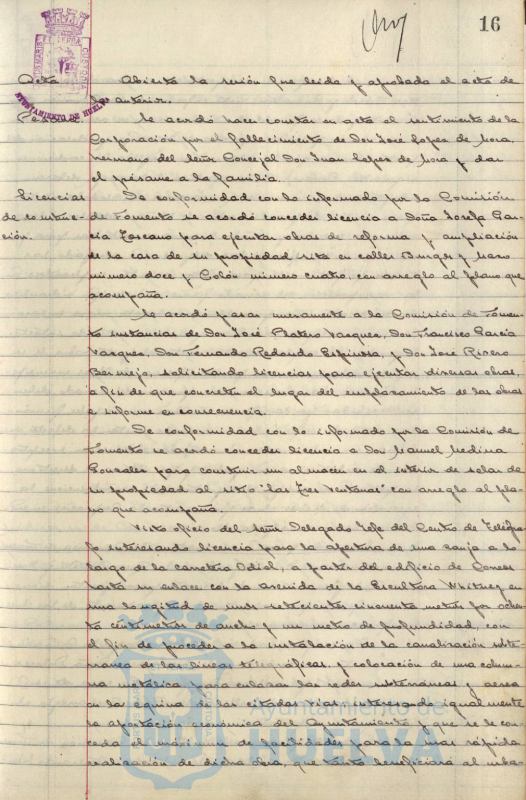 16
PORTUS MARIS ET TERRÆ CUSTODIA
AYUNTAMIENTO DE HUELVA
Acta Abierta la sesión fue leida y aprobado el acta de
la anterior.
Pésame. Se acordó hacer constar en acta el sentimiento de la
Corporación por el fallecimiento de Don José Lopez de Mora
hermano del señor Concejal Don Juan Lopez de Mora y dar
el pésame a la familia.
Licencias De conformidad con lo informado por la Comisión
de construc- de Fomento se acordó conceder licencia a Doña Josefa Gar-
ción. cia Toscano para ejecutar obras de reforma y ampliación
de la casa de su propiedad sita en calles Burgos y Mazo
número doce y Colón número cuatro, con arreglo al plano que
acompaña.
Se acordó pasar nuevamente a la Comisión de Fomen-
to instancias de Don José Platero Vazquez, Don Francisco García
Vazquez, Don Fernando Redondo Espinosa, y Don José Rivero
Bermejo, solicitando licencias para ejecutar diversas obras,
a fin de que concreten el lugar del emplazamiento de las obras
e informe en consecuencia.
De conformidad con lo informado por la Comisión de
Fomento se acordó conceder licencia a Don Manuel Medina
Gonzalez para construir un almacen en el interior de solar de
su propiedad al sitio "Las Tres Ventanas" con arreglo al pla-
no que acompaña.
Visto oficio del señor Delegado Jefe del Centro de Telégra-
fo interesando licencia para la apertura de una zanja a lo
largo de la carretera Odiel, a partir del edificio de Correos
hasta su enlace con la Avenida de la Escultora Whitney en
una longitud de unos setecientos cincuenta metros por ochen-
ta centímetros de ancho y un metro de profundidad, con
el fin de proceder a la instalación de la canalización subte-
rranea de las lineas telegráficas, y colocación de una colum-
na metálica para enlazar las redes subterráneas y aerea
en la esquina de las citadas vias interesando igualmente
la aportación económica del Ayuntamiento y que se le con-
ceda el máximum de facilidades para la mas rápida
realización de dicha obra, que tanto beneficiará al
Ayuntamiento de
HUELVA